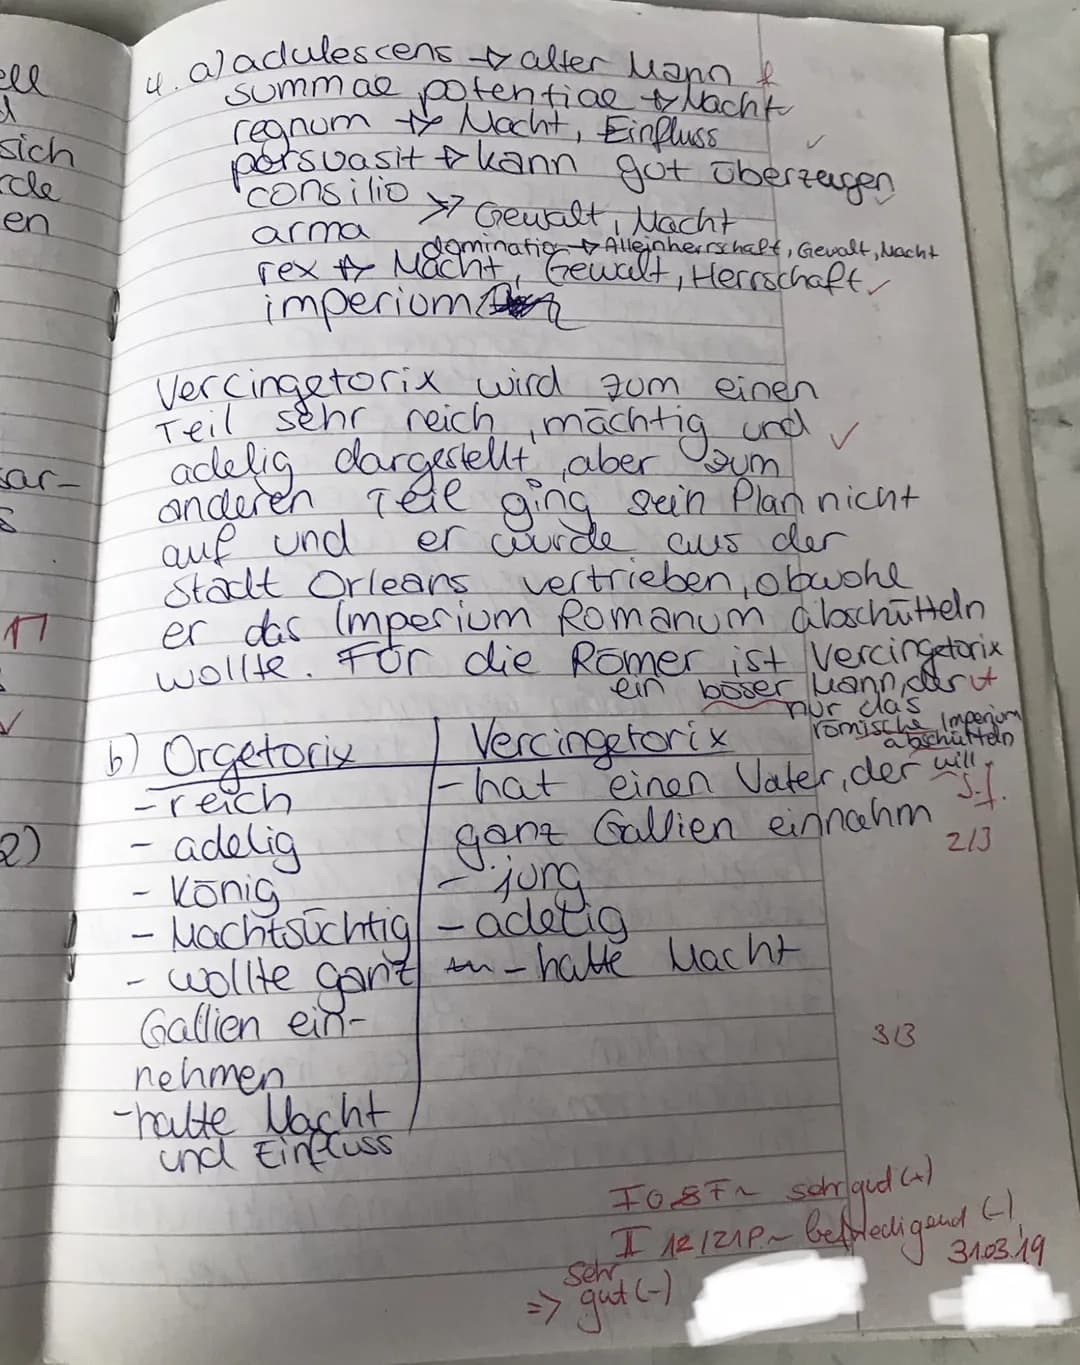 ell
sich
rde
en
sar-
s
17
2)
4. a) adulescens → alter Mann f
summae potentiae → Macht
regnum → Macht, Einfluss
persuasit → kann gut überzeugen
consilio
arma >> Gewalt, Macht
dominatio → Alleinherrschaft, Gewalt, Macht
rex → Macht, Gewalt, Herrschaft
imperium
Vercingetorix wird zum einen
Teil sehr reich, mächtig und
adelig dargestellt, aber zum
anderen Teil ging sein Plan nicht
auf und er wurde aus der
Stadt Orleans vertrieben, obwohl
er das Imperium Romanum abschütteln
wollte. Für die Römer ist Vercingetorix
ein böser Mann, der
nur das
römische Imperium
abschütteln
will
s.f.
2/3
b) Orgetorix | Vercingetorix
- reich
- adelig
- König
- Machtsüchtig
- wollte ganz
Gallien ein-
nehmen
- hatte Macht
und Einfluss
- hat einen Vater, der
ganz Gallien einnahm
- jung
- adelig
- hatte Macht
3/3
I 0,8 F ~ sehr gut (+)
II 12/21P. ~ befriedigend (-)
31.03.19
sehr
=> gut (-)